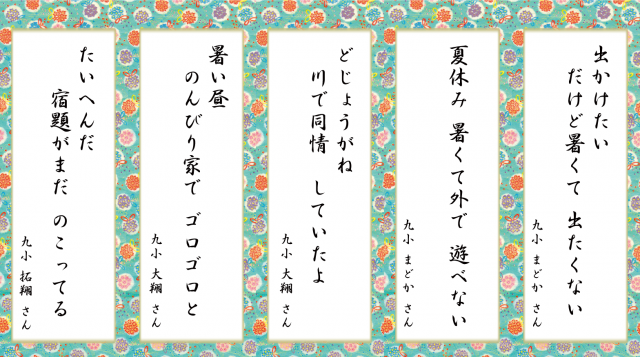 出かけたい
だけど暑くて 出たくない
九小 まどか さん
夏休み 暑くて外で 遊べない
九小 まどか さん
どじょうがね
川で同情 していたよ
九小 大翔 さん
暑い昼
のんびり家で ゴロゴロと
九小 大翔 さん
たいへんだ
宿題がまだ のこってる
九小 拓翔 さん